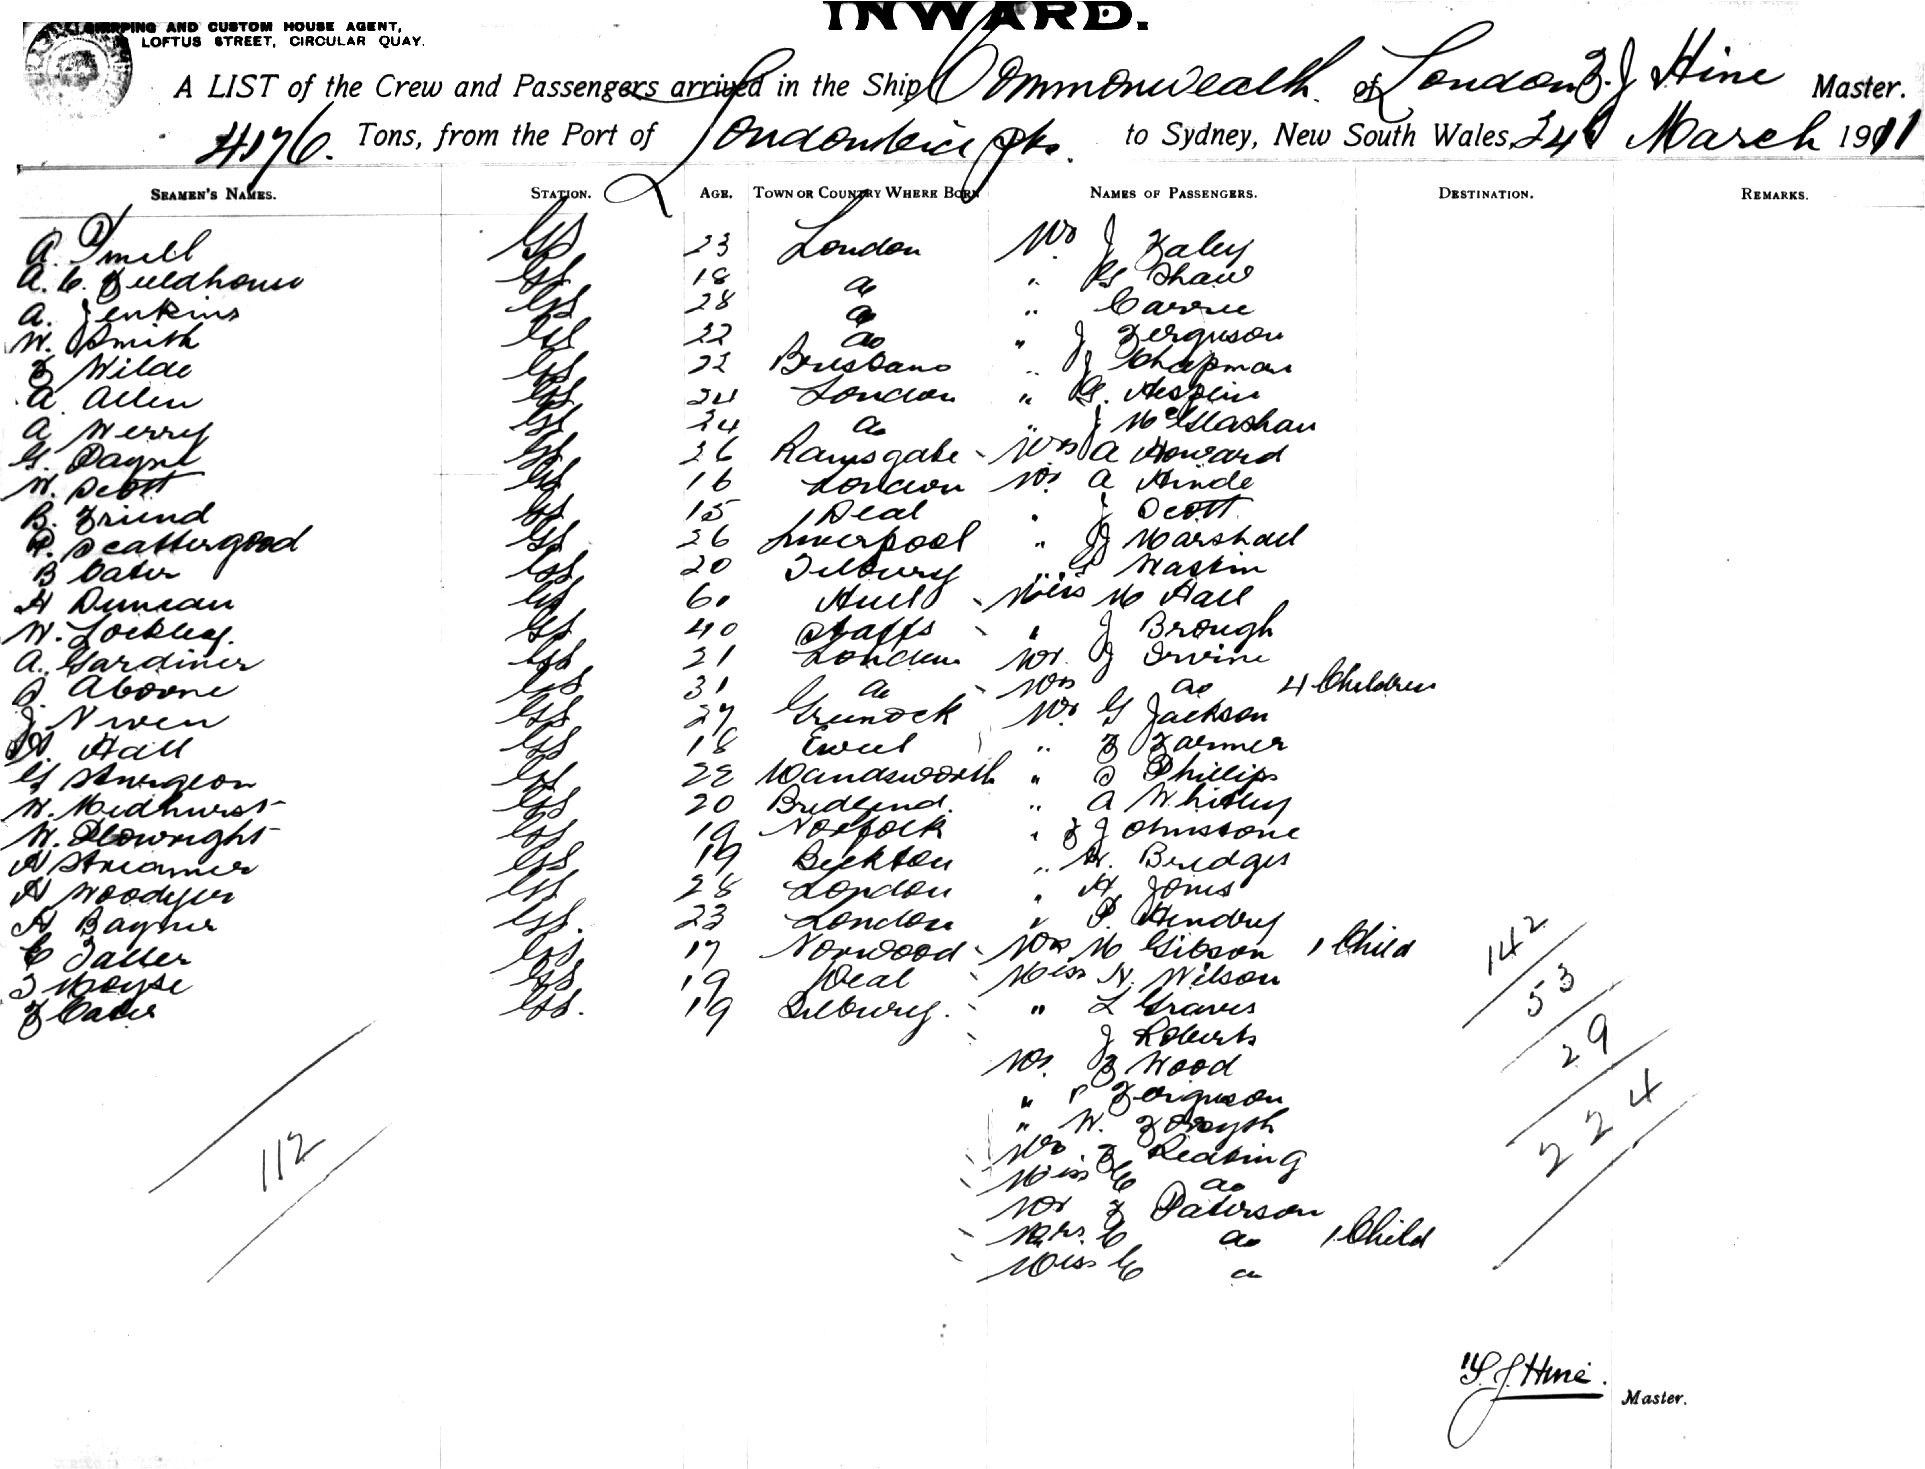 INWARD.
SHIPPING AND CUSTOM HOUSE AGENT,
LOFTUS STREET, CIRCULAR QUAY.
A LIST of the Crew and Passengers arrived in the Ship Commonwealth of London F. J Hine Master.
4176 Tons, from the Port of London to Sydney, New South Wales, 24 March 1911
SEAMEN'S NAMES. STATION. AGE. TOWN OR COUNTRY WHERE BORN NAMES OF PASSENGERS. DESTINATION. REMARKS.
A. GS 23 London Mr J Faley
A. C. Fieldhouse GS 18 do " G Shaw
A. Jenkins GS 28 do " Carrie
W. Smith GS 22 do " J Ferguson
F Wilde GS 22 Brisbane " J Chapman
A Allen GS 24 London " G.
A Werry GS 24 do " J McGlashan
G. Payne GS 26 Ramsgate Mrs A Howard
W. Scott GS 16 London Mr. A Hinde
B. Friend GS 15 Deal " J Scott
P. Scattergood GS 26 Liverpool " J Marshall
B Cater GS 20 Tilbury "
H Duncan GS 60 Hull Miss M Hall
W. Lockley. GS 40 Staffs " J Brough
A. Gardiner GS 21 London Mr. J Irvine
Aborne GS 31 do Mrs do 4 Children
J Niven GS 27 Greenock Mr G Jackson
Hall GS 18 Ewell " F Farmer
G Sturgeon GS 22 Wandsworth " S Phillips
W. Medhurst GS 20 Bridgend. " A Whitley
W. Plowright GS 19 Norfolk " F Johnstone
H Streamer GS 19 Beckton " W. Bridges
H Woodyer GS 28 London " H Jones
H Bayner GS. 23 London " P. Hendry
C GS 17 Norwood Mrs M Gibson 1 Child
T Moyse GS 19 Deal Miss N. Wilson
F Cater GS. 19 Tilbury. " L Graves
J Roberts
Mr. F Wood
" P Ferguson
" W. Forsyth
Mr F Keating
Miss C do
Mr F Paterson
Mrs. C do 1 Child
Miss C do
112
142
53
29
224
F. J Hine. Master.